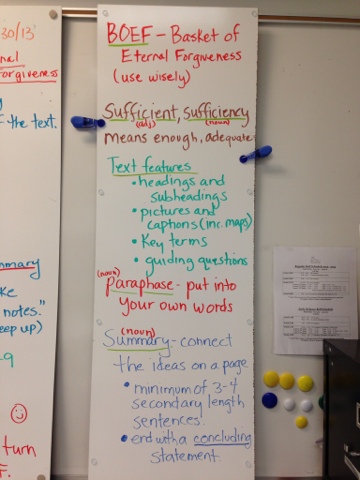 BOEF - Basket of
Eternal Forgiveness
(use wisely)
Sufficient, Sufficiency
(adj) (noun)
means enough, adequate
Text features
• headings and
subheadings
• pictures and
captions (inc. maps)
• Key terms
• guiding questions
(noun)
Paraphase - put into
your own words
(noun)
Summary - connect
the ideas on a page
• minimum of 3-4
secondary length
sentences
• end with a concluding
statement
30/13
nal
orgiveness
y
f the text.
mmary
ke
notes."
eep up)
g
turn
F.